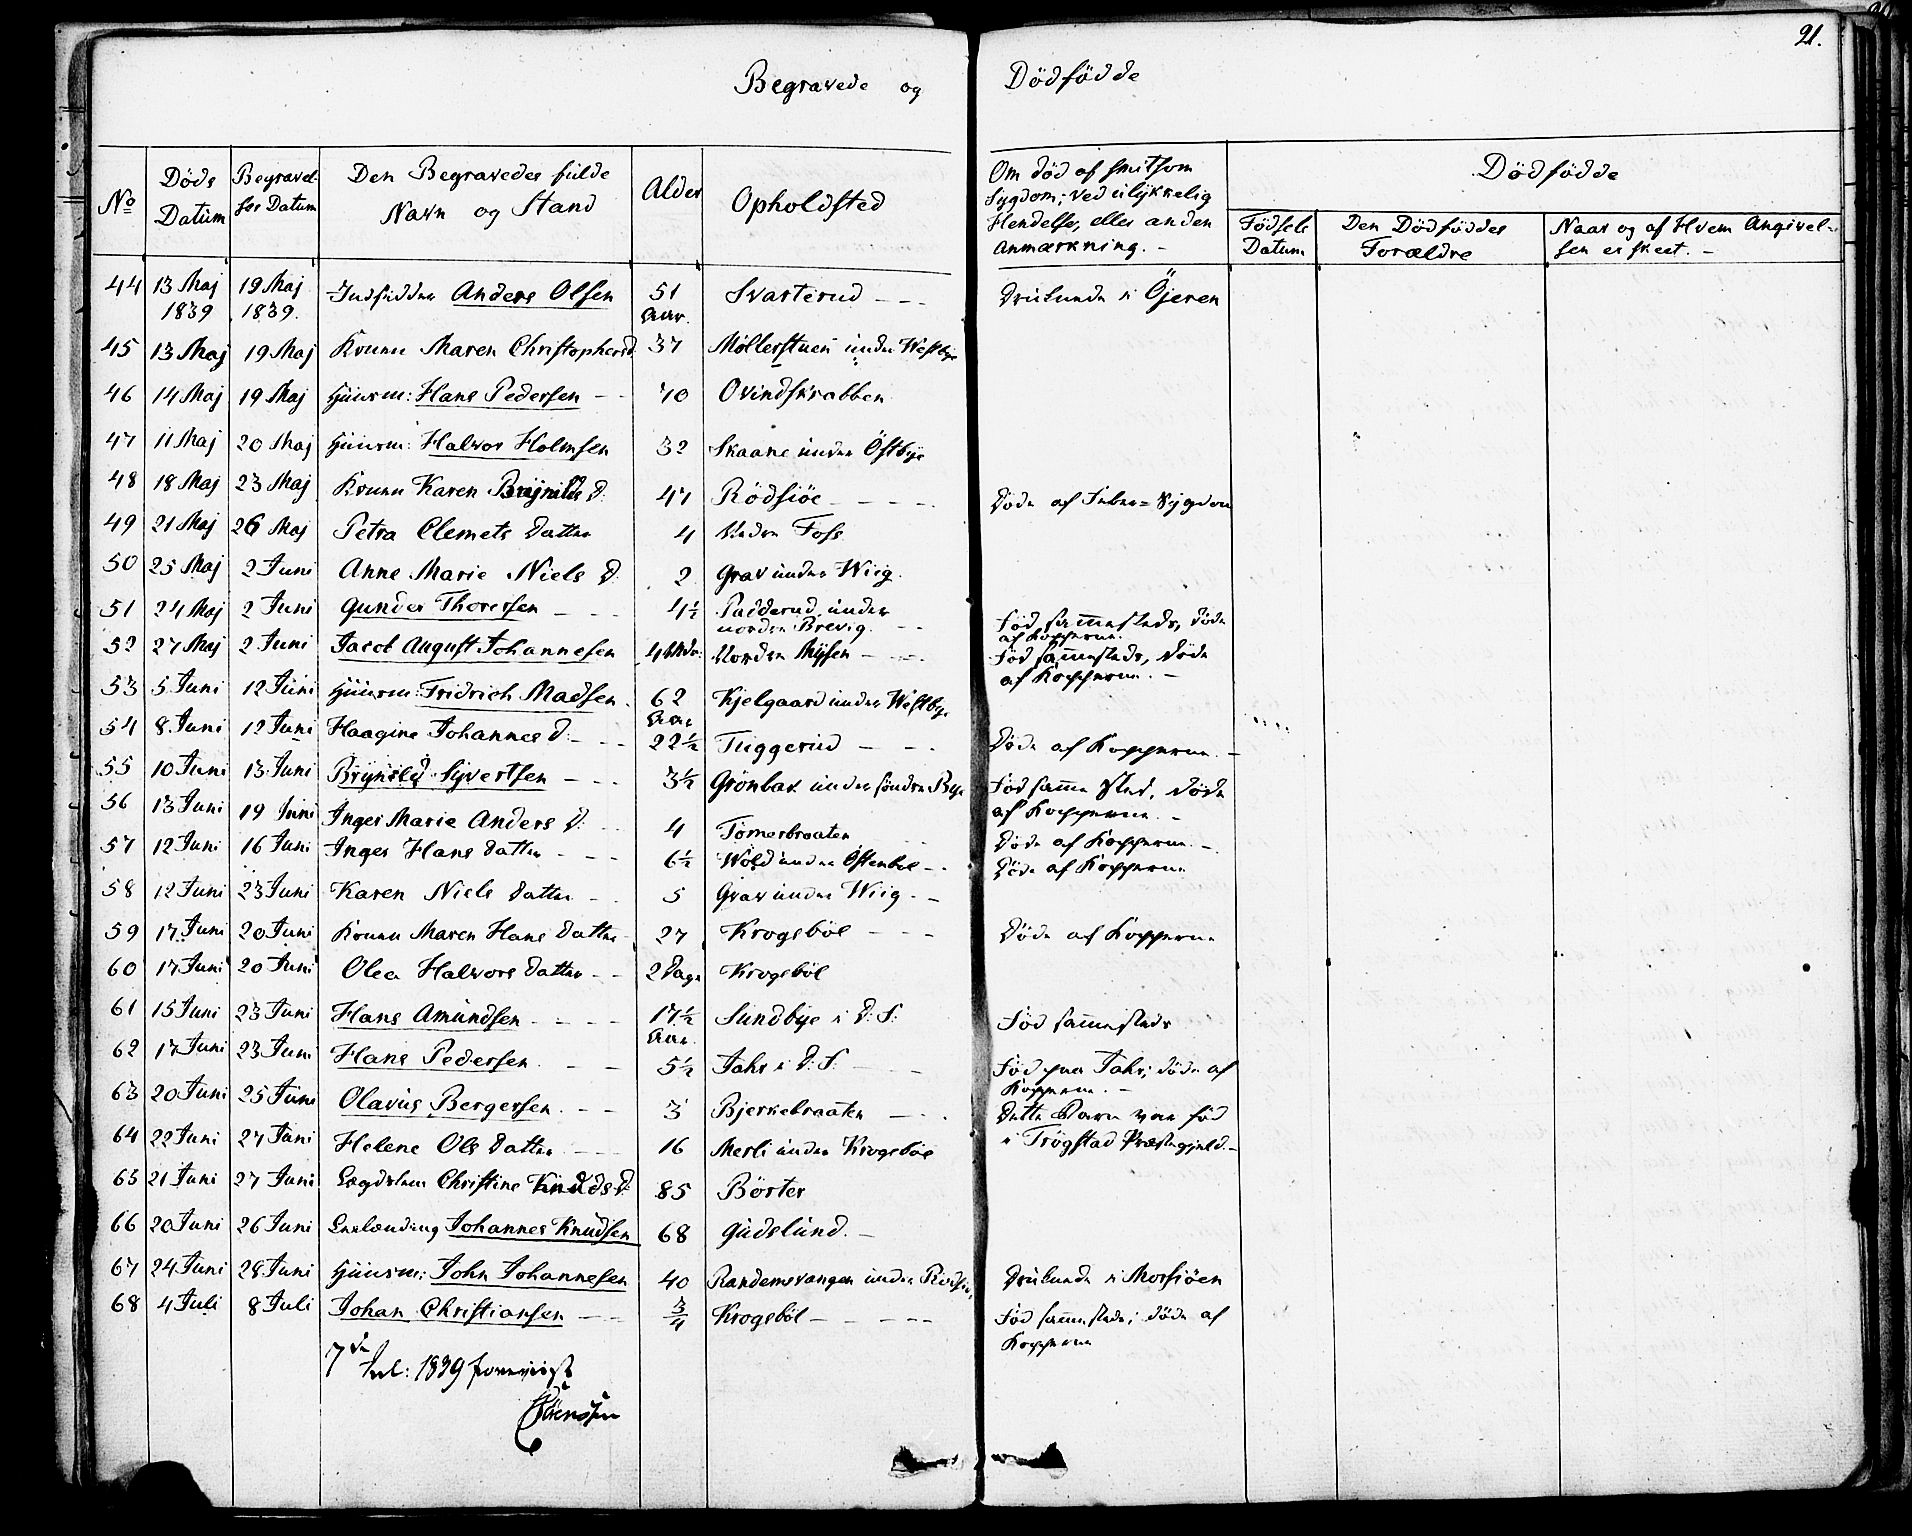 21.
Begravede og Dödfödde
No
Döds Datum
Begravelses Datum
Den Begravedes fulde Navn og Stand
Alder
Opholdsted
Om död af smitsom Sygdom; ved ulykkelig Hendelse, eller anden Anmærkning. -
Dödfödde
Födsels Datum
Den Dödföddes Forældre
Naar og af Hvem Angivelsen er skeet. -
44 13 Maj 1839 19 Maj 1839. Indsidder Anders Olsen 51 Aar. Svarterud - - - Drucknede i Öjeren
45 13 Maj 19 Maj Konen Maren Christophersd. 37 Møllerstuen under Westbye
46 14 Maj 19 Maj Huusm: Hans Pedersen - - 70 Ovindskrabben
47 11 Maj 20 Maj Huusm: Halvor Holmsen 32 Skaane under Östbye
48 18 Maj 23 Maj Konen Karen Brynilds d: 47 Rödsiöe - - - - Döde af Feber=Sygdom
49 21 Maj 26 Maj Petra Clemets datter 4 Nedre Foss
50 25 Maj 2 Juni Anne Marie Niels d: 2 Grav under Wiig.
51 24 Maj 2 Juni Gunder Thoresen - - - 4½ Padderud under nordre Brevig. - - Föd sammesteds, döde af Kopperne.
52 27 Maj 2 Juni Jacob August Johannesen 4 Mdr: Nordre Mysen - - - Föd sammesteds, döde af Kopperne. -
53 5 Juni 12 Juni Huusm: Fridrich Madsen. 62 Aar Kjelgaard under Westbye
54 8 Juni 12 Juni Haagine Johannes d: - - - 22½ Tuggerud - - - Döde af Kopperne. -
55 10 Juni 13 Juni Brynild Syvertsen - - - 3½ Grönbak under söndre Bye Föd samme Sted, döde af Kopperne. -
56 13 Juni 19 Juni Inger Marie Anders d: - - 4 Tömerbraaten - - Döde af Kopperne. -
57 12 Juni 16 Juni Inger Hans datter - - - 6½ Wold under Östenböe - - Döde af Kopperne
58 12 Juni 23 Juni Karen Niels datter - - 5 Grav under Wiig. -
59 17 Juni 20 Juni Konen Maren Hans datter 27 Krogsböl - - - Döde af Kopperne
60 17 Juni 20 Juni Olea Halvors datter - - 2 Dage Krogsböl
61 15 Juni 23 Juni Hans Amundsen - - - - 17½ Aar. Sundbye i D: S: Föd sammesteds
62 17 Juni 23 Juni Hans Pedersen - - - 5½ Jahr i D: S: - - - Föd paa Jahr; döde af Kopperne. -
63 20 Juni 25 Juni Olavus Bergersen. - - 3 Bjerkebraaten - - - Dette Barn var föd i Trögstad Præstegjeld. -
64 22 Juni 27 Juni Helene Ols datter - - - 16 Merli under Krogsböe
65 21 Juni 27 Juni Lægdslem Christine Knuds d: 85 Börter
66 20 Juni 26 Juni Johannes Knudsen 68 Gudslund. -
67 24 Juni 28 Juni Huusm: John Johannesen 40 Randemsvangen under Drucknede i Morsiöen
68 4 Juli 8 Juli Johan Christiansen - - - ¾ Krogsböl - - - - - Föd sammesteds; döde af Kopperne
7de Jul: 1839 foreviist
Sörensen